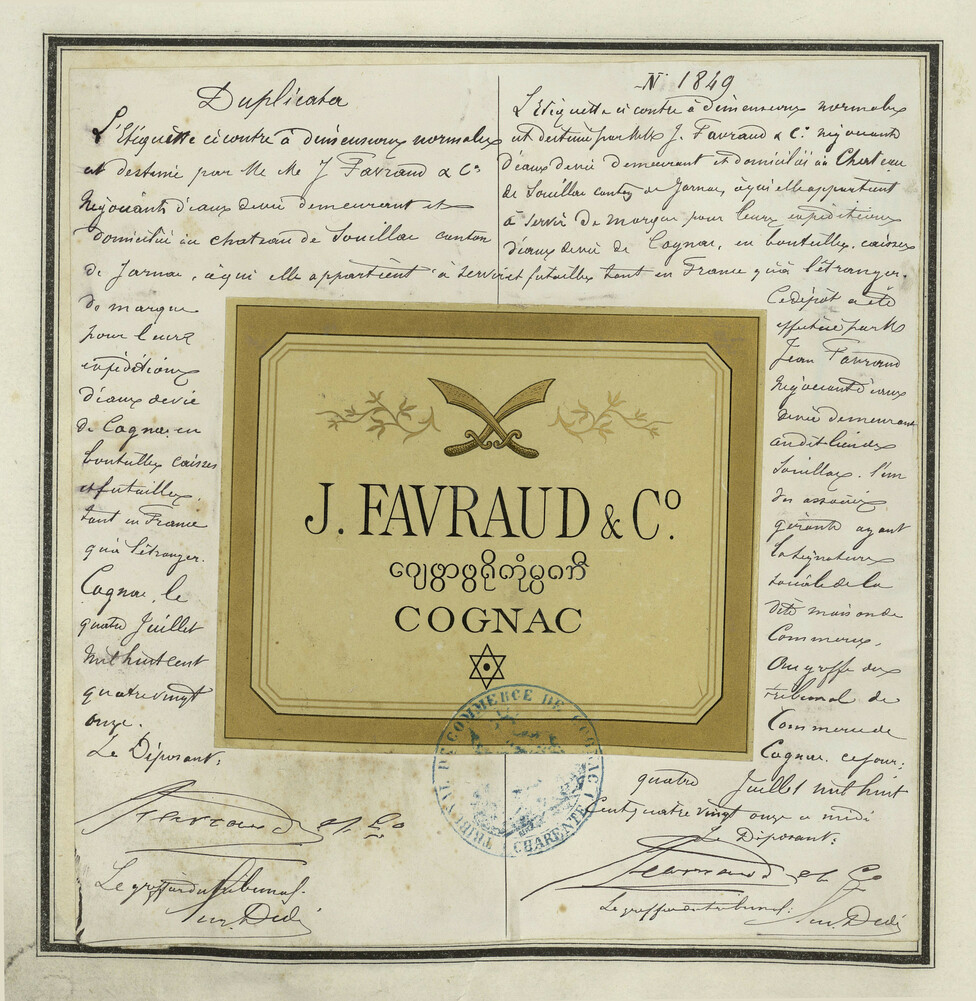 Duplicata
L'Etiquette ci contre à dimensions normales
est destinée par Me Me J Favraud & Cº
Négociants d'eaux devie demeurant et
domicilié au chateau de Souillac canton
de Jarnac, à qui elle appartient à servir
de marque
pour leurs
expéditions
d'eaux devie
de Cognac en
bouteilles caisses
et futailles.
tant en France
qu'à l'étranger.
Cognac, le
quatre Juillet
mil huit cent
quatre vingt
onze.
Le Déposant:
Favraud et Co
Le greffier du Tribunal:
Nº 1849
L'Etiquette ci contre à dimensions normales
est destinée par MM J. Favraud & Cº Négociants
d'eaux devie demeurant et domiciliés au Chateau
de Souillac canton de Jarnac, à qui elle appartient
à servir de marque pour leurs expéditions
d'eaux devie de Cognac, en bouteilles, caisses
et futailles tant en France qu'à l'étranger.
Ce dépôt a été
effectué par M
Jean Favraud
Négociant d'eaux
devie demeurant
au dit lieu de
Souillac. l'un
des associés
gérants ayant
la signature
sociale de la
dite maison de
Commerce,
Au greffe du
tribunal de
Commerce de
Cognac ce jour:
quatre Juillet mil huit
Cent quatre vingt onze a midi
Le Déposant:
Favraud et Co
Le greffier du tribunal:
J. FAVRAUD & Cº.
COGNAC
TRIBUNAL DE COMMERCE DE COGNAC
(CHARENTE)